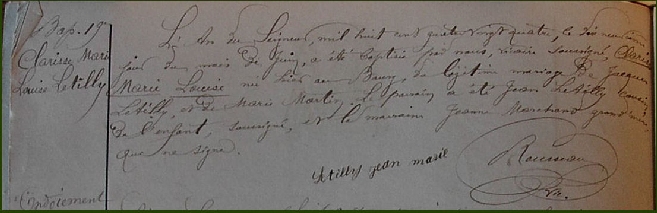 Bap. 19e
Clarisse Marie
Louise Letilly
L'An du Seigneur, mil huit cent quatre vingt quatre, le dix neuvième
jour du mois de juin, a été baptisé par nous, vicaire soussigné, Clarisse
Marie Louise née hier au Bourg, du légitime mariage de Jacques
Letilly et de Marie Martin. Le parrain a été Jean Letilly cousin
de l'enfant, soussigné, et la marraine Jeanne Marchand grand'mère,
qui ne signe.
letilly jean marie
Rousseau
Vic.